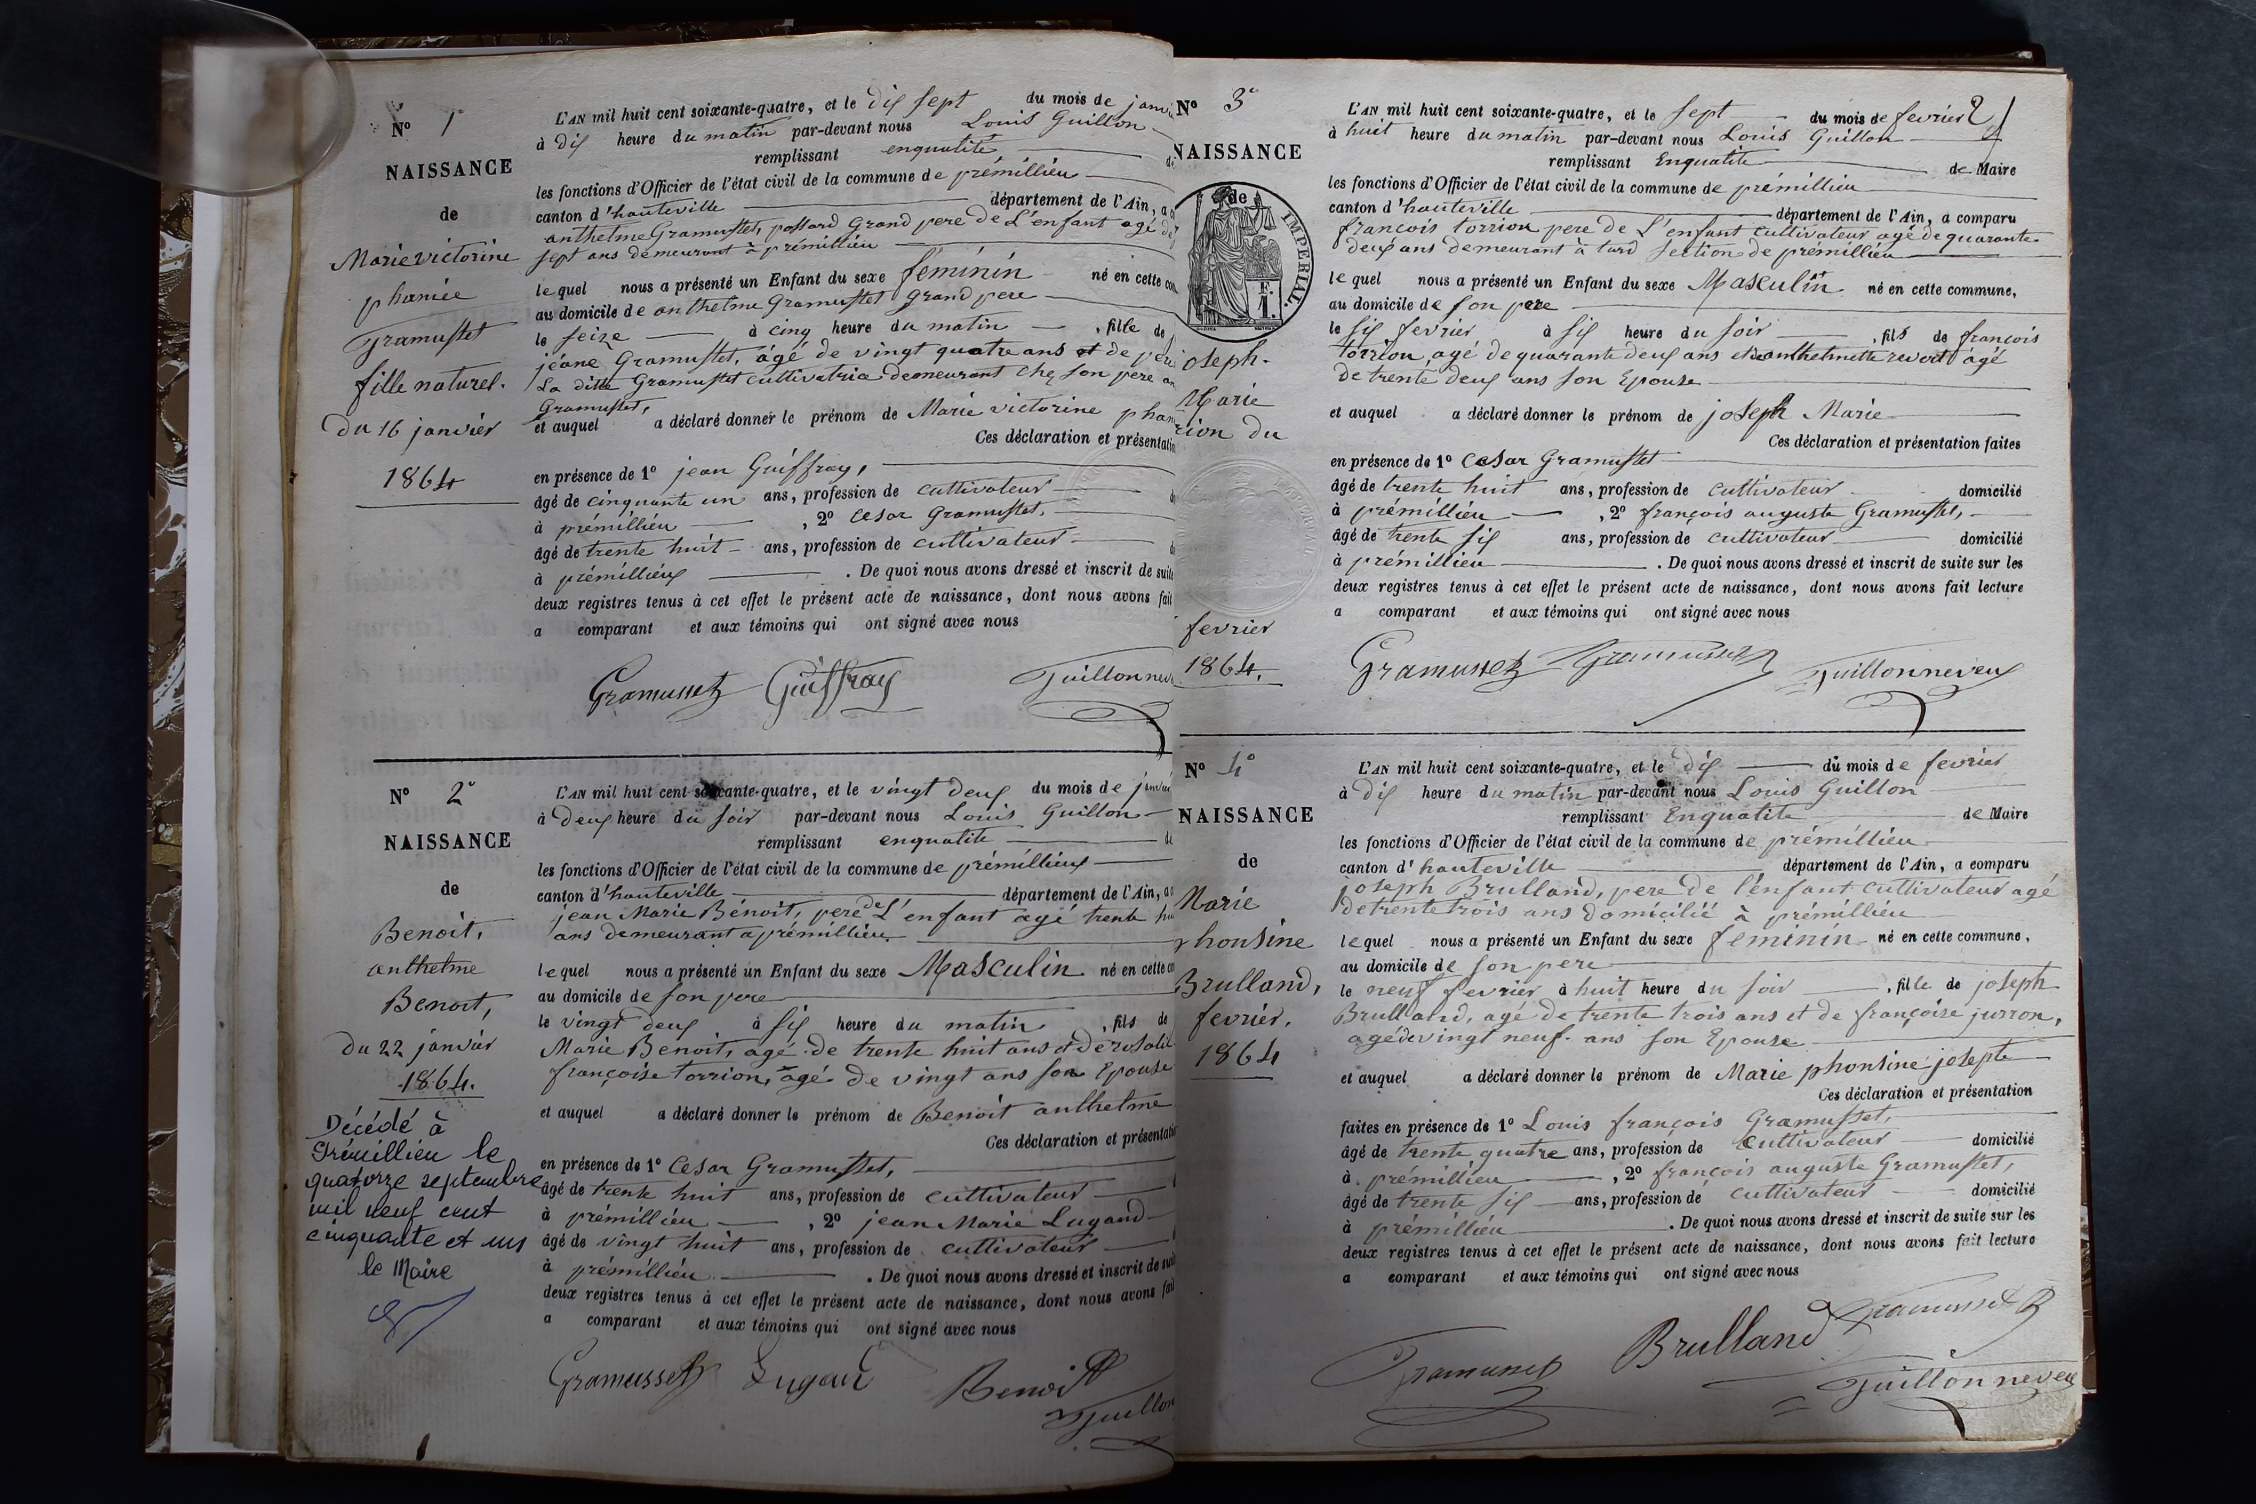 Nº 1º
NAISSANCE
de
Marie victorine
phanie
Gramusset
fille naturel.
du 16 janvier
1864
L'AN mil huit cent soixante-quatre, et le dix sept du mois de janvi
à dix heure du matin par-devant nous Louis Guillon
remplissant enqualité
les fonctions d'Officier de l'état civil de la commune de prémillieu
canton d'hauteville département de l'Ain, a
anthelme Gramusset, Grand pere de L'enfant agé de
sept ans demeurant à prémillieu
lequel nous a présenté un Enfant du sexe féminin né en cette
au domicile de anthelme Gramusset Grand pere
le seize à cinq heure du matin , fille de
jéane Gramusset, âgé de vingt quatre ans et de
La ditte Gramusset cultivatrice demeurant chez son pere
Gramusset,
et auquel a déclaré donner le prénom de Marie victorine
Ces déclaration et présentation
en présence de 1º jean Guiffray,
âgé de cinquante un ans, profession de cultivateur
à prémillieu , 2º Cesar Gramusset,
âgé de trente huit ans, profession de cultivateur
à prémillieu . De quoi nous avons dressé et inscrit de suite
deux registres tenus à cet effet le présent acte de naissance, dont nous avons fait
a comparant et aux témoins qui ont signé avec nous
Gramusset Guiffray Guillon nev
Nº 2º
NAISSANCE
de
Benoit,
anthelme
Benoit,
du 22 janvier
1864.
Décédé à
Prémillieu le
quatorze septembre
mil neuf cent
cinquante et un
le Maire
L'AN mil huit cent soixante-quatre, et le vingt deux du mois de janvier
à deux heure du soir par-devant nous Louis Guillon
remplissant enqualité
les fonctions d'Officier de l'état civil de la commune de prémillieu
canton d'hauteville département de l'Ain, a
jean Marie Bénoit, pere de L'enfant agé trente
ans demeurant a prémillieu
lequel nous a présenté un Enfant du sexe Masculin né en cette
au domicile de son pere
le vingt deux à six heure du matin , fils de
Marie Benoit, agé de trente huit ans et de rosalie
françoise torrion, agé de vingt ans son Epouse
et auquel a déclaré donner le prénom de Benoit anthelme
Ces déclaration et présentation
en présence de 1º Cesar Gramusset,
âgé de trente huit ans, profession de cultivateur
à prémillieu , 2º jean Marie Lugand
âgé de vingt huit ans, profession de cultivateur
à prémillieu . De quoi nous avons dressé et inscrit de suite
deux registres tenus à cet effet le présent acte de naissance, dont nous avons fait
a comparant et aux témoins qui ont signé avec nous
Gramusset Lugand Benoit
Guillon
Nº 3º
NAISSANCE
de
IMPERIAL.
F.
1.
joseph.
Marie
rion du
fevrier
1864.
L'AN mil huit cent soixante-quatre, et le sept du mois de fevrier 2
à huit heure du matin par-devant nous Louis Guillon
remplissant Enqualité de Maire
les fonctions d'Officier de l'état civil de la commune de prémillieu
canton d'hauteville département de l'Ain, a comparu
françois torrion pere de L'enfant cultivateur agé de quarante
deux ans demeurant à tard section de prémillieu
lequel nous a présenté un Enfant du sexe Masculin né en cette commune,
au domicile de son pere
le six fevrier à six heure du soir , fils de françois
torrion agé de quarante deux ans et de anthelmette agé
de trente deux ans son Epouse
et auquel a déclaré donner le prénom de joseph Marie
Ces déclaration et présentation faites
en présence de 1º Cesar Gramusset
âgé de trente huit ans, profession de cultivateur domicilié
à prémillieu , 2º françois auguste Gramusset,
âgé de trente six ans, profession de cultivateur domicilié
à prémillieu . De quoi nous avons dressé et inscrit de suite sur les
deux registres tenus à cet effet le présent acte de naissance, dont nous avons fait lecture
a comparant et aux témoins qui ont signé avec nous
Gramusset Gramusset Guillon neveu
Nº 4º
NAISSANCE
de
Marie
phonsine
Brulland,
fevrier.
1864
L'AN mil huit cent soixante-quatre, et le dix du mois de fevrier
à dix heure du matin par-devant nous Louis Guillon
remplissant Enqualité de Maire
les fonctions d'Officier de l'état civil de la commune de prémillieu
canton d'hauteville département de l'Ain, a comparu
joseph Brulland, pere de l'enfant cultivateur agé
de trente trois ans domicilié à prémillieu
lequel nous a présenté un Enfant du sexe feminin né en cette commune,
au domicile de son pere
le neuf fevrier à huit heure du soir , fille de joseph
Brulland, agé de trente trois ans et de françoise jurron,
agé de vingt neuf ans son Epouse
et auquel a déclaré donner le prénom de Marie phonsine josepte
Ces déclaration et présentation
faites en présence de 1º Louis françois Gramusset,
âgé de trente quatre ans, profession de cultivateur domicilié
à prémillieu , 2º françois auguste Gramusset,
âgé de trente six ans, profession de cultivateur domicilié
à prémillieu . De quoi nous avons dressé et inscrit de suite sur les
deux registres tenus à cet effet le présent acte de naissance, dont nous avons fait lecture
a comparant et aux témoins qui ont signé avec nous
Gramusset Brulland Gramusset
Guillon neveu